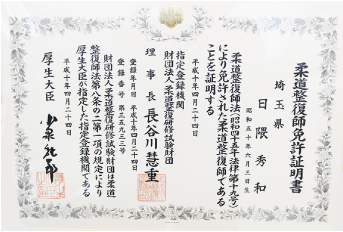 柔道整復師免許証明書
埼玉県
日隈秀和
昭和五十年六月三日生
柔道整復師法(昭和四十五年法律第十九号)
により免許された柔道整復師である
ことを証明する
平成十年四月二十四日
指定登録機関
財団法人柔道整復研修試験財団
理事長 長谷川慧重
登録年月日 平成十年四月二十四日
登録番号 第三五九三三号
財団法人柔道整復研修試験財団は柔道
整復師法第八条の二第一項の規定により
厚生大臣が指定した指定登録機関である
平成十年四月二十四日
厚生大臣 小泉純一郎